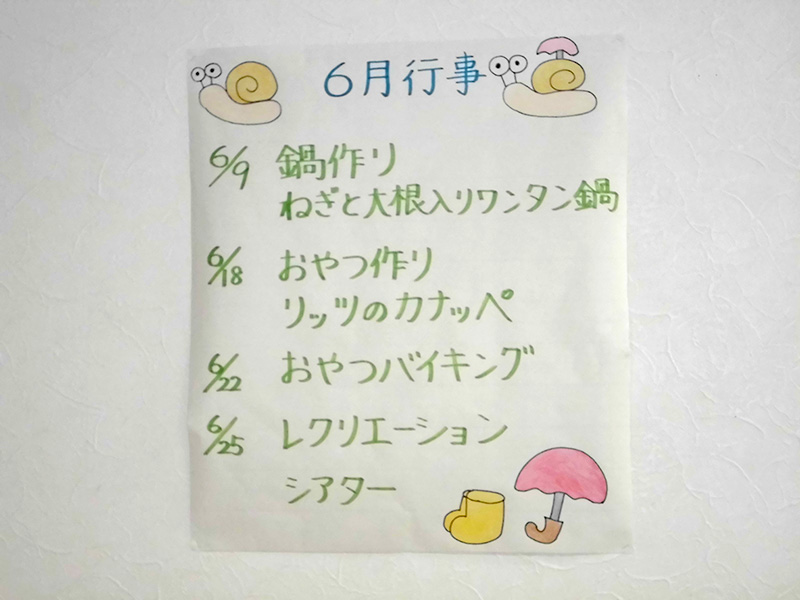 6月行事
6/9 鍋作り
ねぎと大根入りワンタン鍋
6/18 おやつ作り
リッツのカナッペ
6/22 おやつバイキング
6/25 レクリエーション
シアター